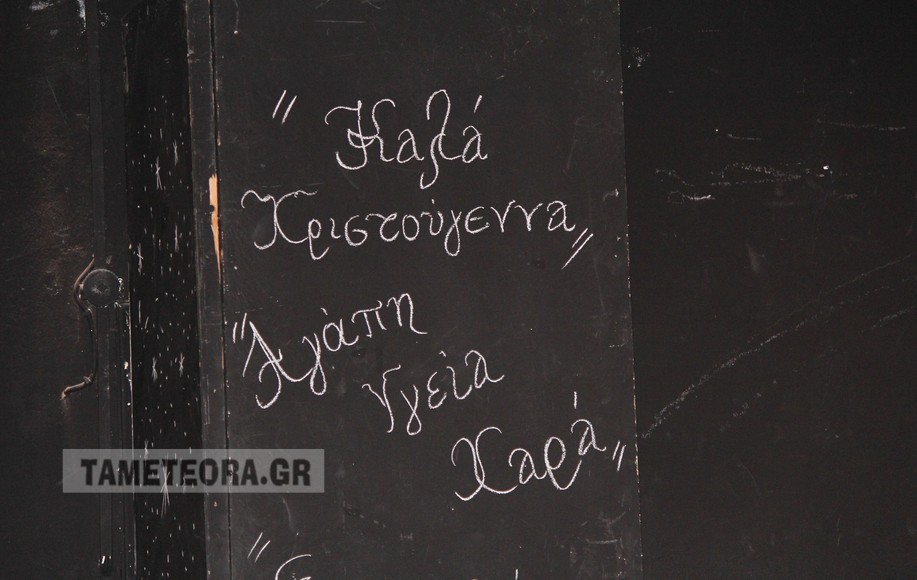 " Καλά
Χριστούγεννα "
" Αγάπη
Υγεία
Χαρά "
TAMETEORA.GR
"